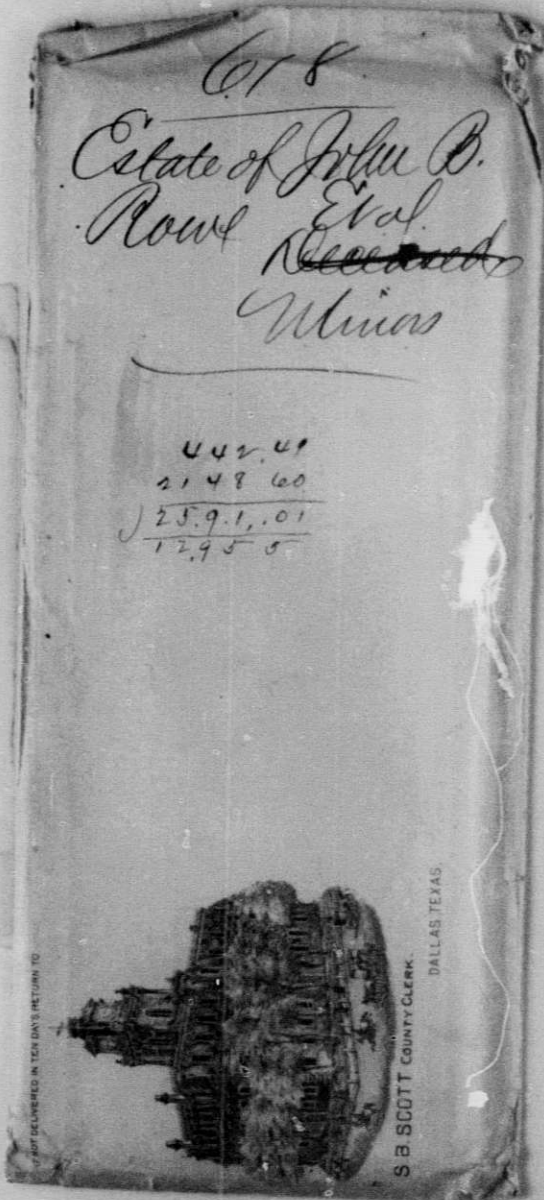 618
Estate of John B.
Rowe Et al
Deceased
Minors
442.41
2148 60
2591.01
1295 5
NOT DELIVERED IN TEN DAYS RETURN TO
S.B. SCOTT COUNTY CLERK.
DALLAS TEXAS